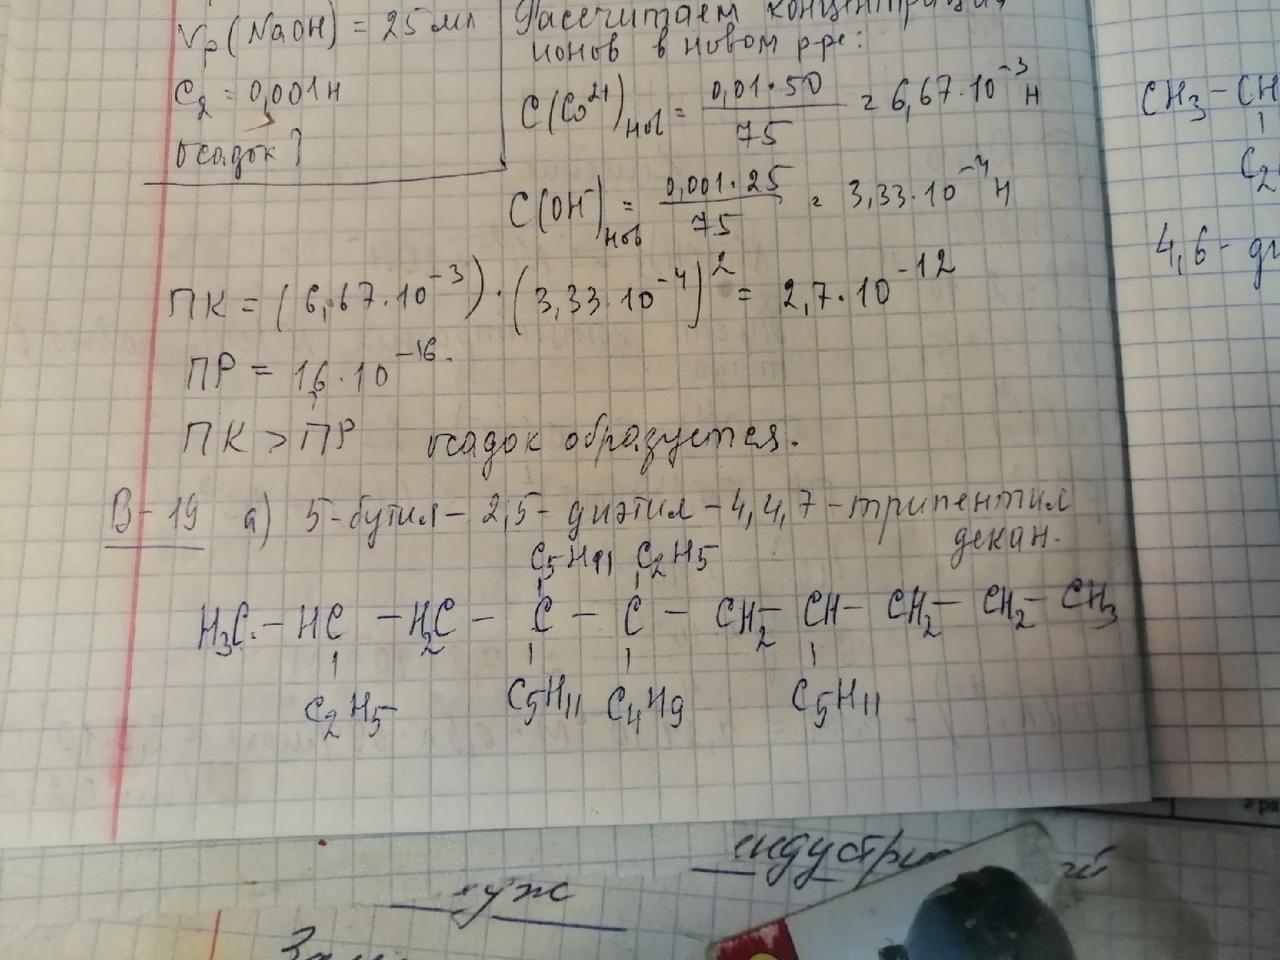 Vр(NaOH) = 25 мл
C₂ = 0,001 н
осадок?
Рассчитаем концентрации
ионов в новом р-ре:
C(Co²⁺)нов = 0,01·50 / 75 = 6,67·10⁻³ н
C(OH⁻)нов = 0,001·25 / 75 = 3,33·10⁻⁴ н
ПК = (6,67·10⁻³)·(3,33·10⁻⁴)² = 2,7·10⁻¹²
ПР = 1,6·10⁻¹⁶.
ПК > ПР осадок образуется.
В-19 а) 5-бутил-2,5-диэтил-4,4,7-трипентил
декан.
C₅H₁₁ C₂H₅
H₃C - HC - H₂C - C - C - CH₂ - CH - CH₂ - CH₂ - CH₃
C₂H₅ C₅H₁₁ C₄H₉ C₅H₁₁
CH₃-CH
4,6-